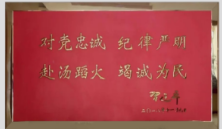 对党忠诚 纪律严明
赴汤蹈火 竭诚为民